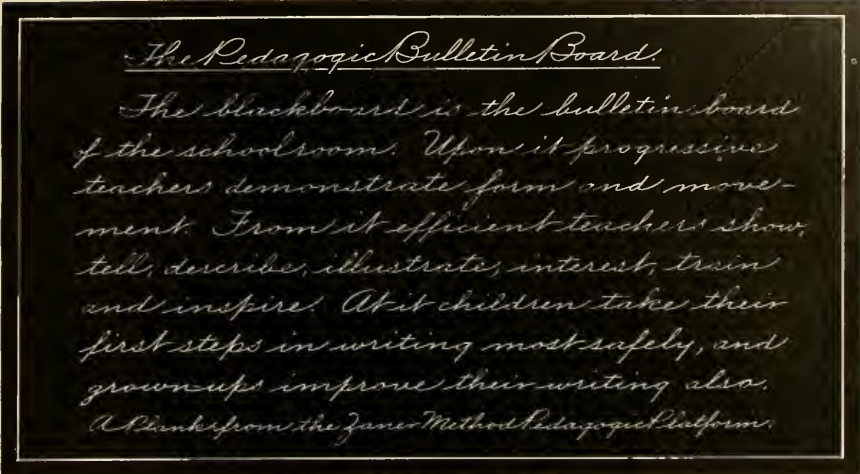 The Pedagogic Bulletin Board.
The blackboard is the bulletin board
of the schoolroom. Upon it progressive
teachers demonstrate form and move-
ment. From it efficient teachers show,
tell, describe, illustrate, interest, train
and inspire. At it children take their
first steps in writing most safely, and
grown-ups improve their writing also.
A Plank from the Zaner Method Pedagogic Platform.